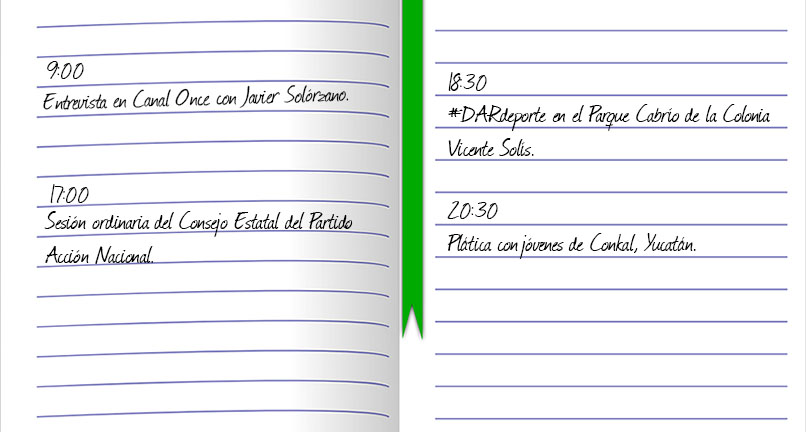 9:00
Entrevista en Canal Once con Javier Solórzano.
17:00
Sesión ordinaria del Consejo Estatal del Partido
Acción Nacional.
18:30
#DARdeporte en el Parque Cabrío de la Colonia
Vicente Solís.
20:30
Plática con jóvenes de Conkal, Yucatán.